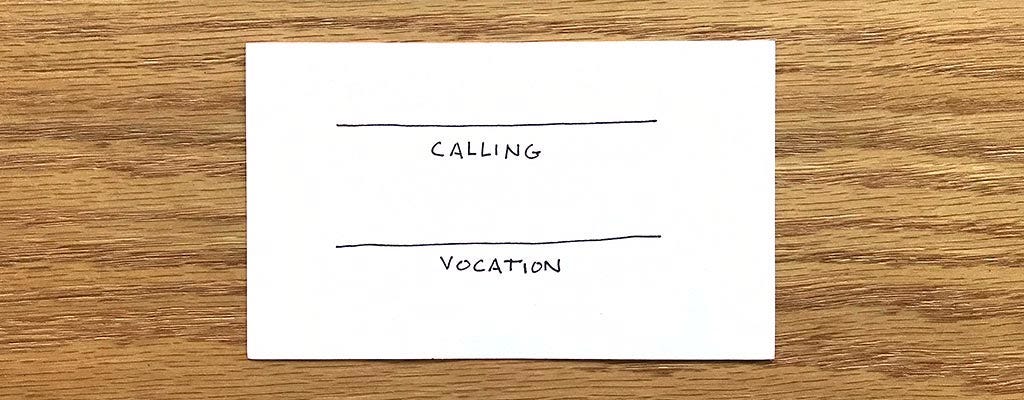 CALLING
VOCATION